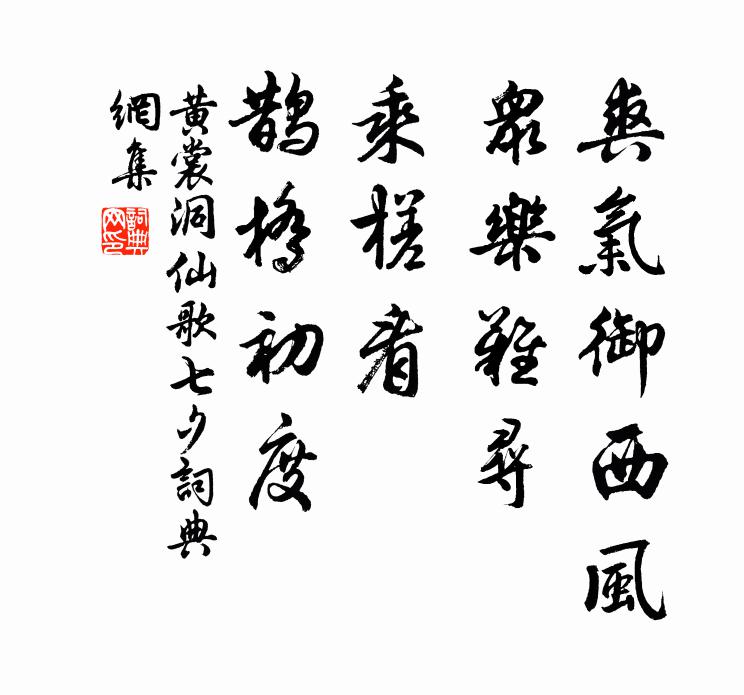 爽氣御西風
眾樂難尋
乘槎看
鵲橋初度
黃裳洞仙歌七夕詞典
網集
詞典网印